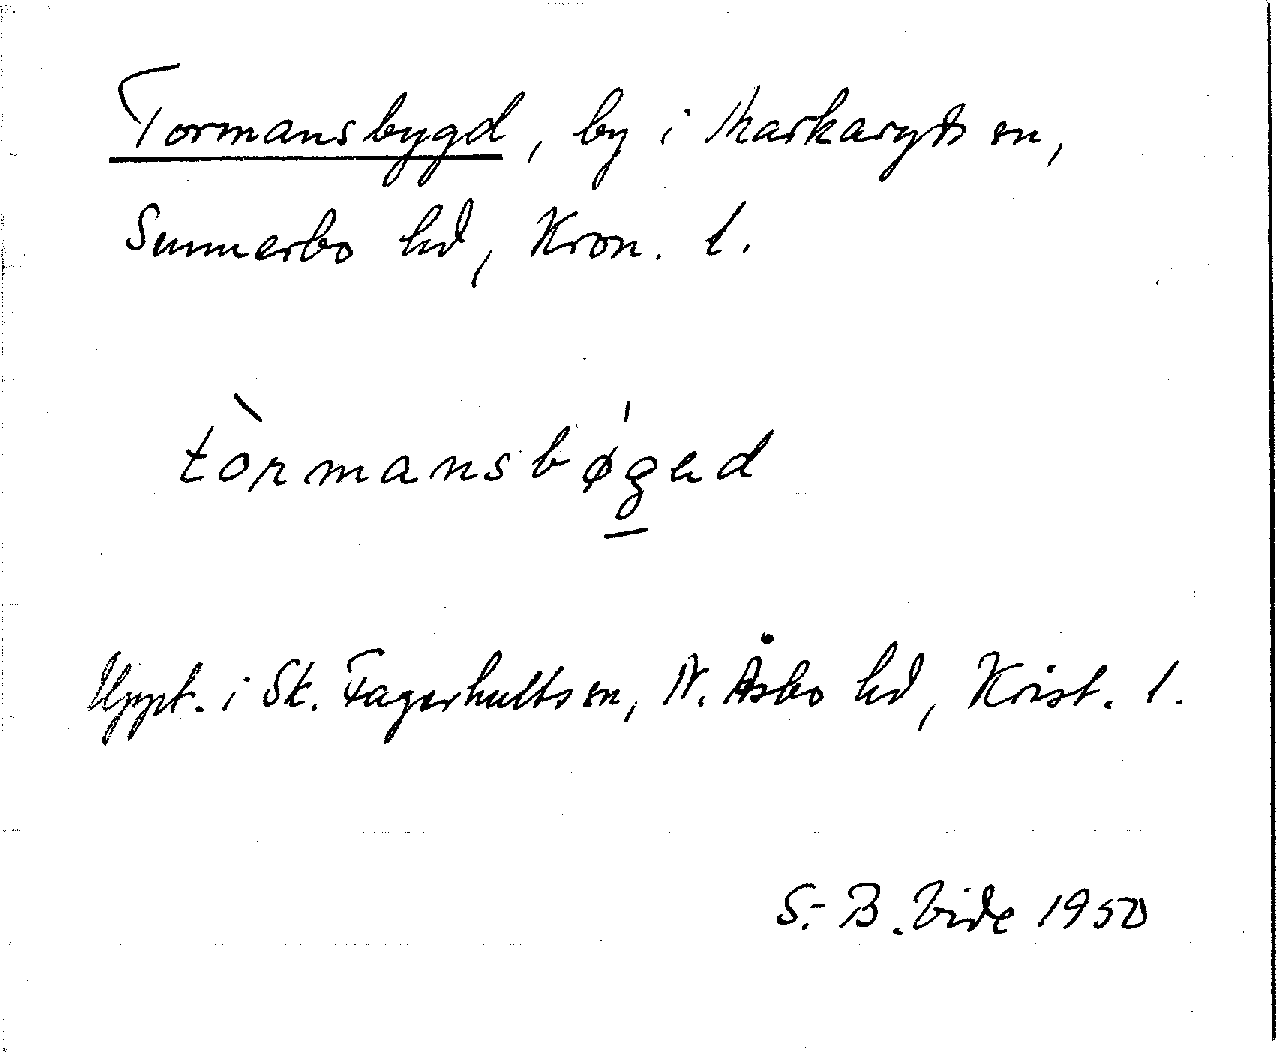 Tormansbygd, by i Markaryds sn,
Sunnerbo hd, Kron. l.
tòrmansbǿg̱ad
Uppt. i Sk. Fagerhults sn, N. Åsbo hd, Krist. l.
S.-B. Vide 1950